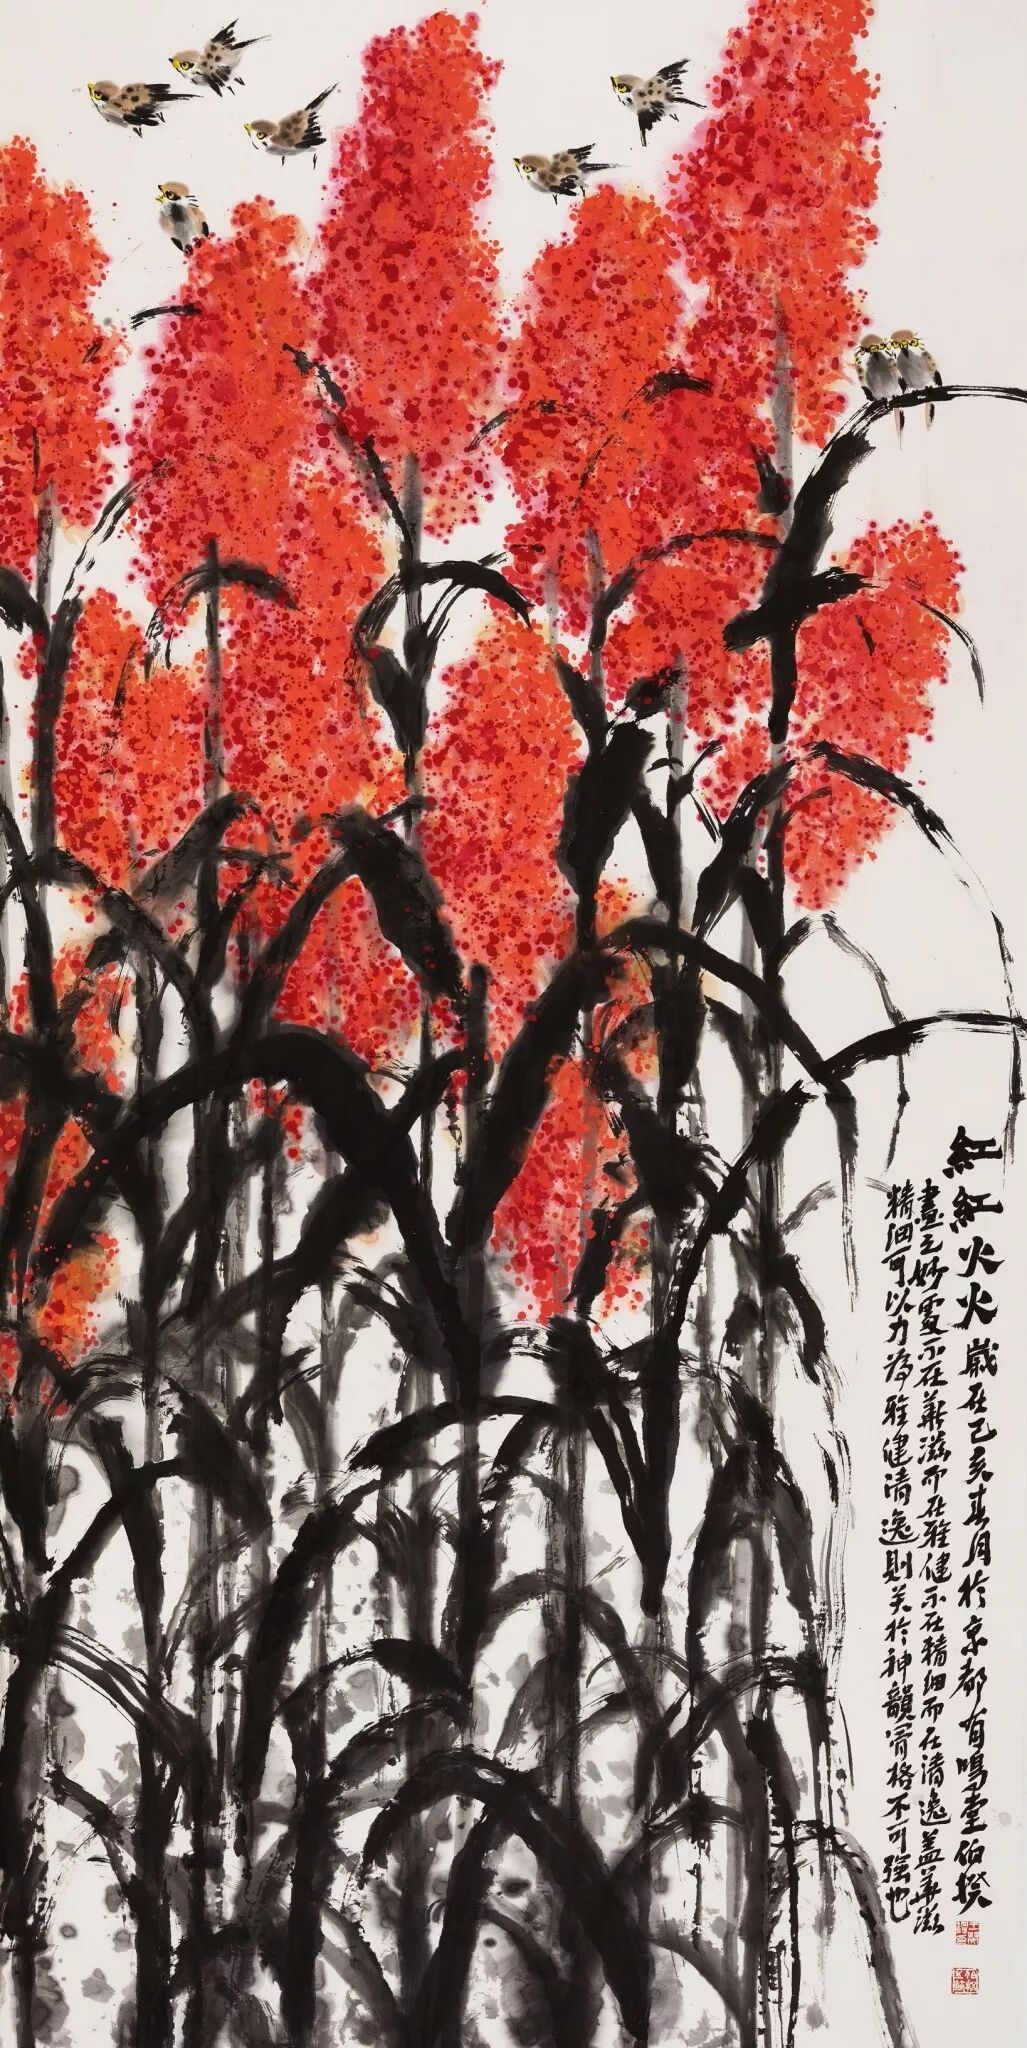 紅紅火火 歲在己亥春月於京都有鳴堂伯揆
畫之妙處不在華滋而在雅健不在精細而在清逸蓋華滋
精細可以力為雅健清逸則关於神韻骨格不可强也